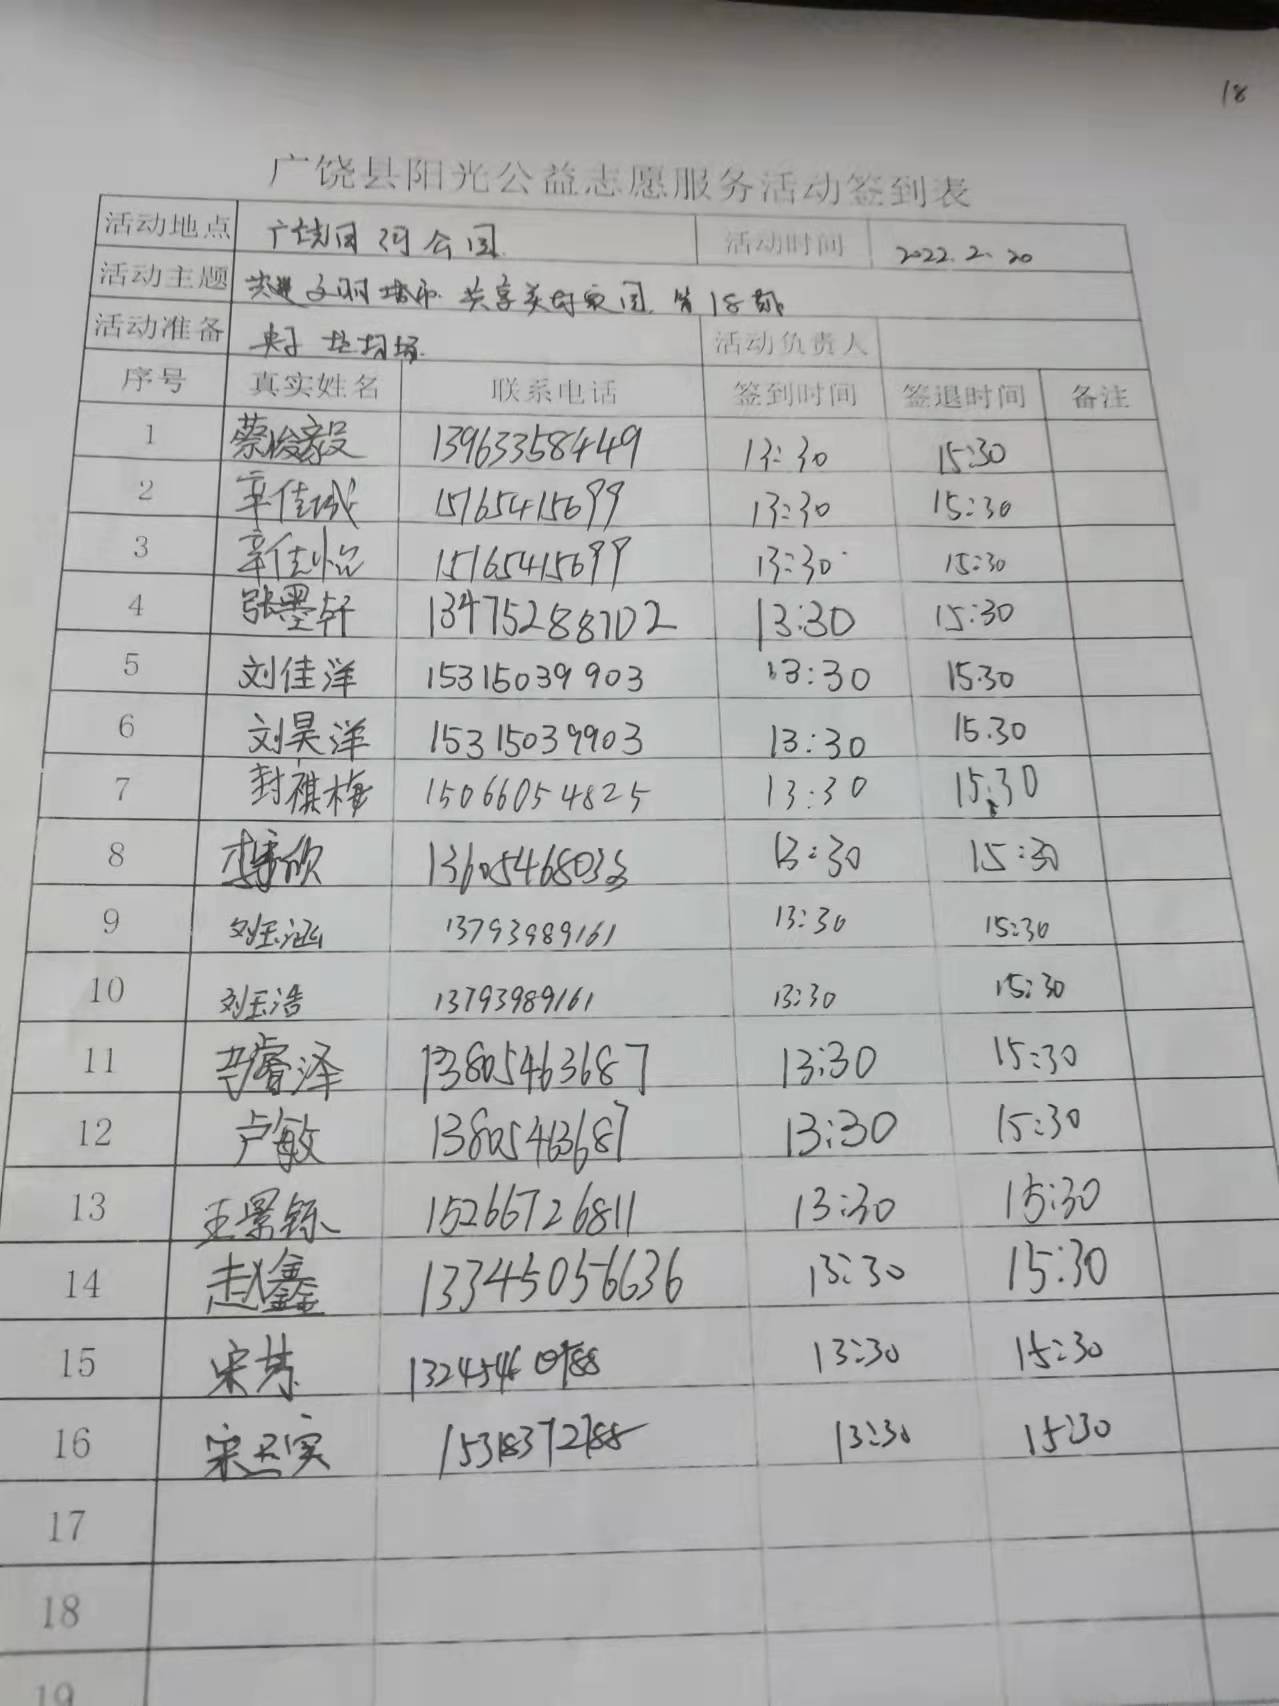 18
广饶县阳光公益志愿服务活动签到表
活动地点 广饶 河公园 活动时间 2022.2.20
活动主题 共建文明城市 共享美好家园 第18期
活动准备 夹子 垃圾 活动负责人
序号 真实姓名 联系电话 签到时间 签退时间 备注
1 蔡俊毅 13963358449 13:30 15:30
2 辛佳城 15165415699 13:30 15:30
3 辛佳怡 15165415699 13:30 15:30
4 张墨轩 13475288702 13:30 15:30
5 刘佳洋 15315039903 13:30 15:30
6 刘昊洋 15315039903 13:30 15.30
7 封祺梅 15066054825 13:30 15:30
8 13:30 15:30
9 刘玉涵 13793989161 13:30 15:30
10 刘玉浩 13793989161 13:30 15:30
11 睿泽 13805463687 13:30 15:30
12 卢敏 13805463687 13:30 15:30
13 王景铄 15266726811 13:30 15:30
14 赵鑫 13345056636 13:30 15:30
15 宋 13:30 15:30
16 宋 实 15318372788 13:30 15:30
17
18
19